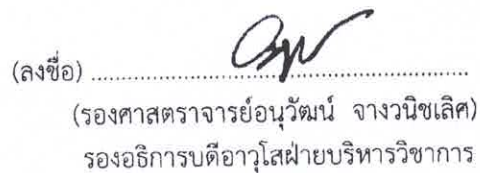 (ลงชื่อ) ........................................................
(รองศาสตราจารย์อนุวัฒน์ จางวนิชเลิศ)
รองอธิการบดีอาวุโสฝ่ายบริหารวิชาการ